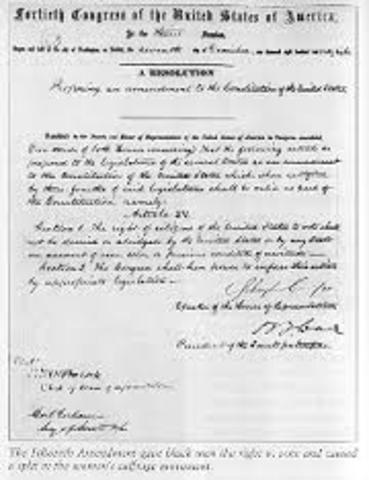 Fortieth Congress of the United States of America,
In the Third Session,
Begun and held at the city of Washington, on Monday, the seventh day of December, one thousand eight hundred and sixty-eight
A RESOLUTION
Proposing an amendment to the Constitution of the United States.
Resolved by the Senate and House of Representatives of the United States of America in Congress assembled,
(two thirds of both Houses concurring) That the following article be
proposed to the legislatures of the several States as an amendment
to the Constitution of the United States which when ratified
by three fourths of said legislatures shall be valid as part of
the Constitution, namely:
Article XV.
Section 1. The right of citizens of the United States to vote shall
not be denied or abridged by the United States or by any State
on account of race, color, or previous condition of servitude—
Section 2. The Congress shall have power to enforce this article
by appropriate legislation—
Speaker of the House of Representatives
President of the Senate pro tempore
Attest
Clerk of House of Representatives
The Fifteenth Amendment gave black men the right to vote and caused
a split in the women's suffrage movement.